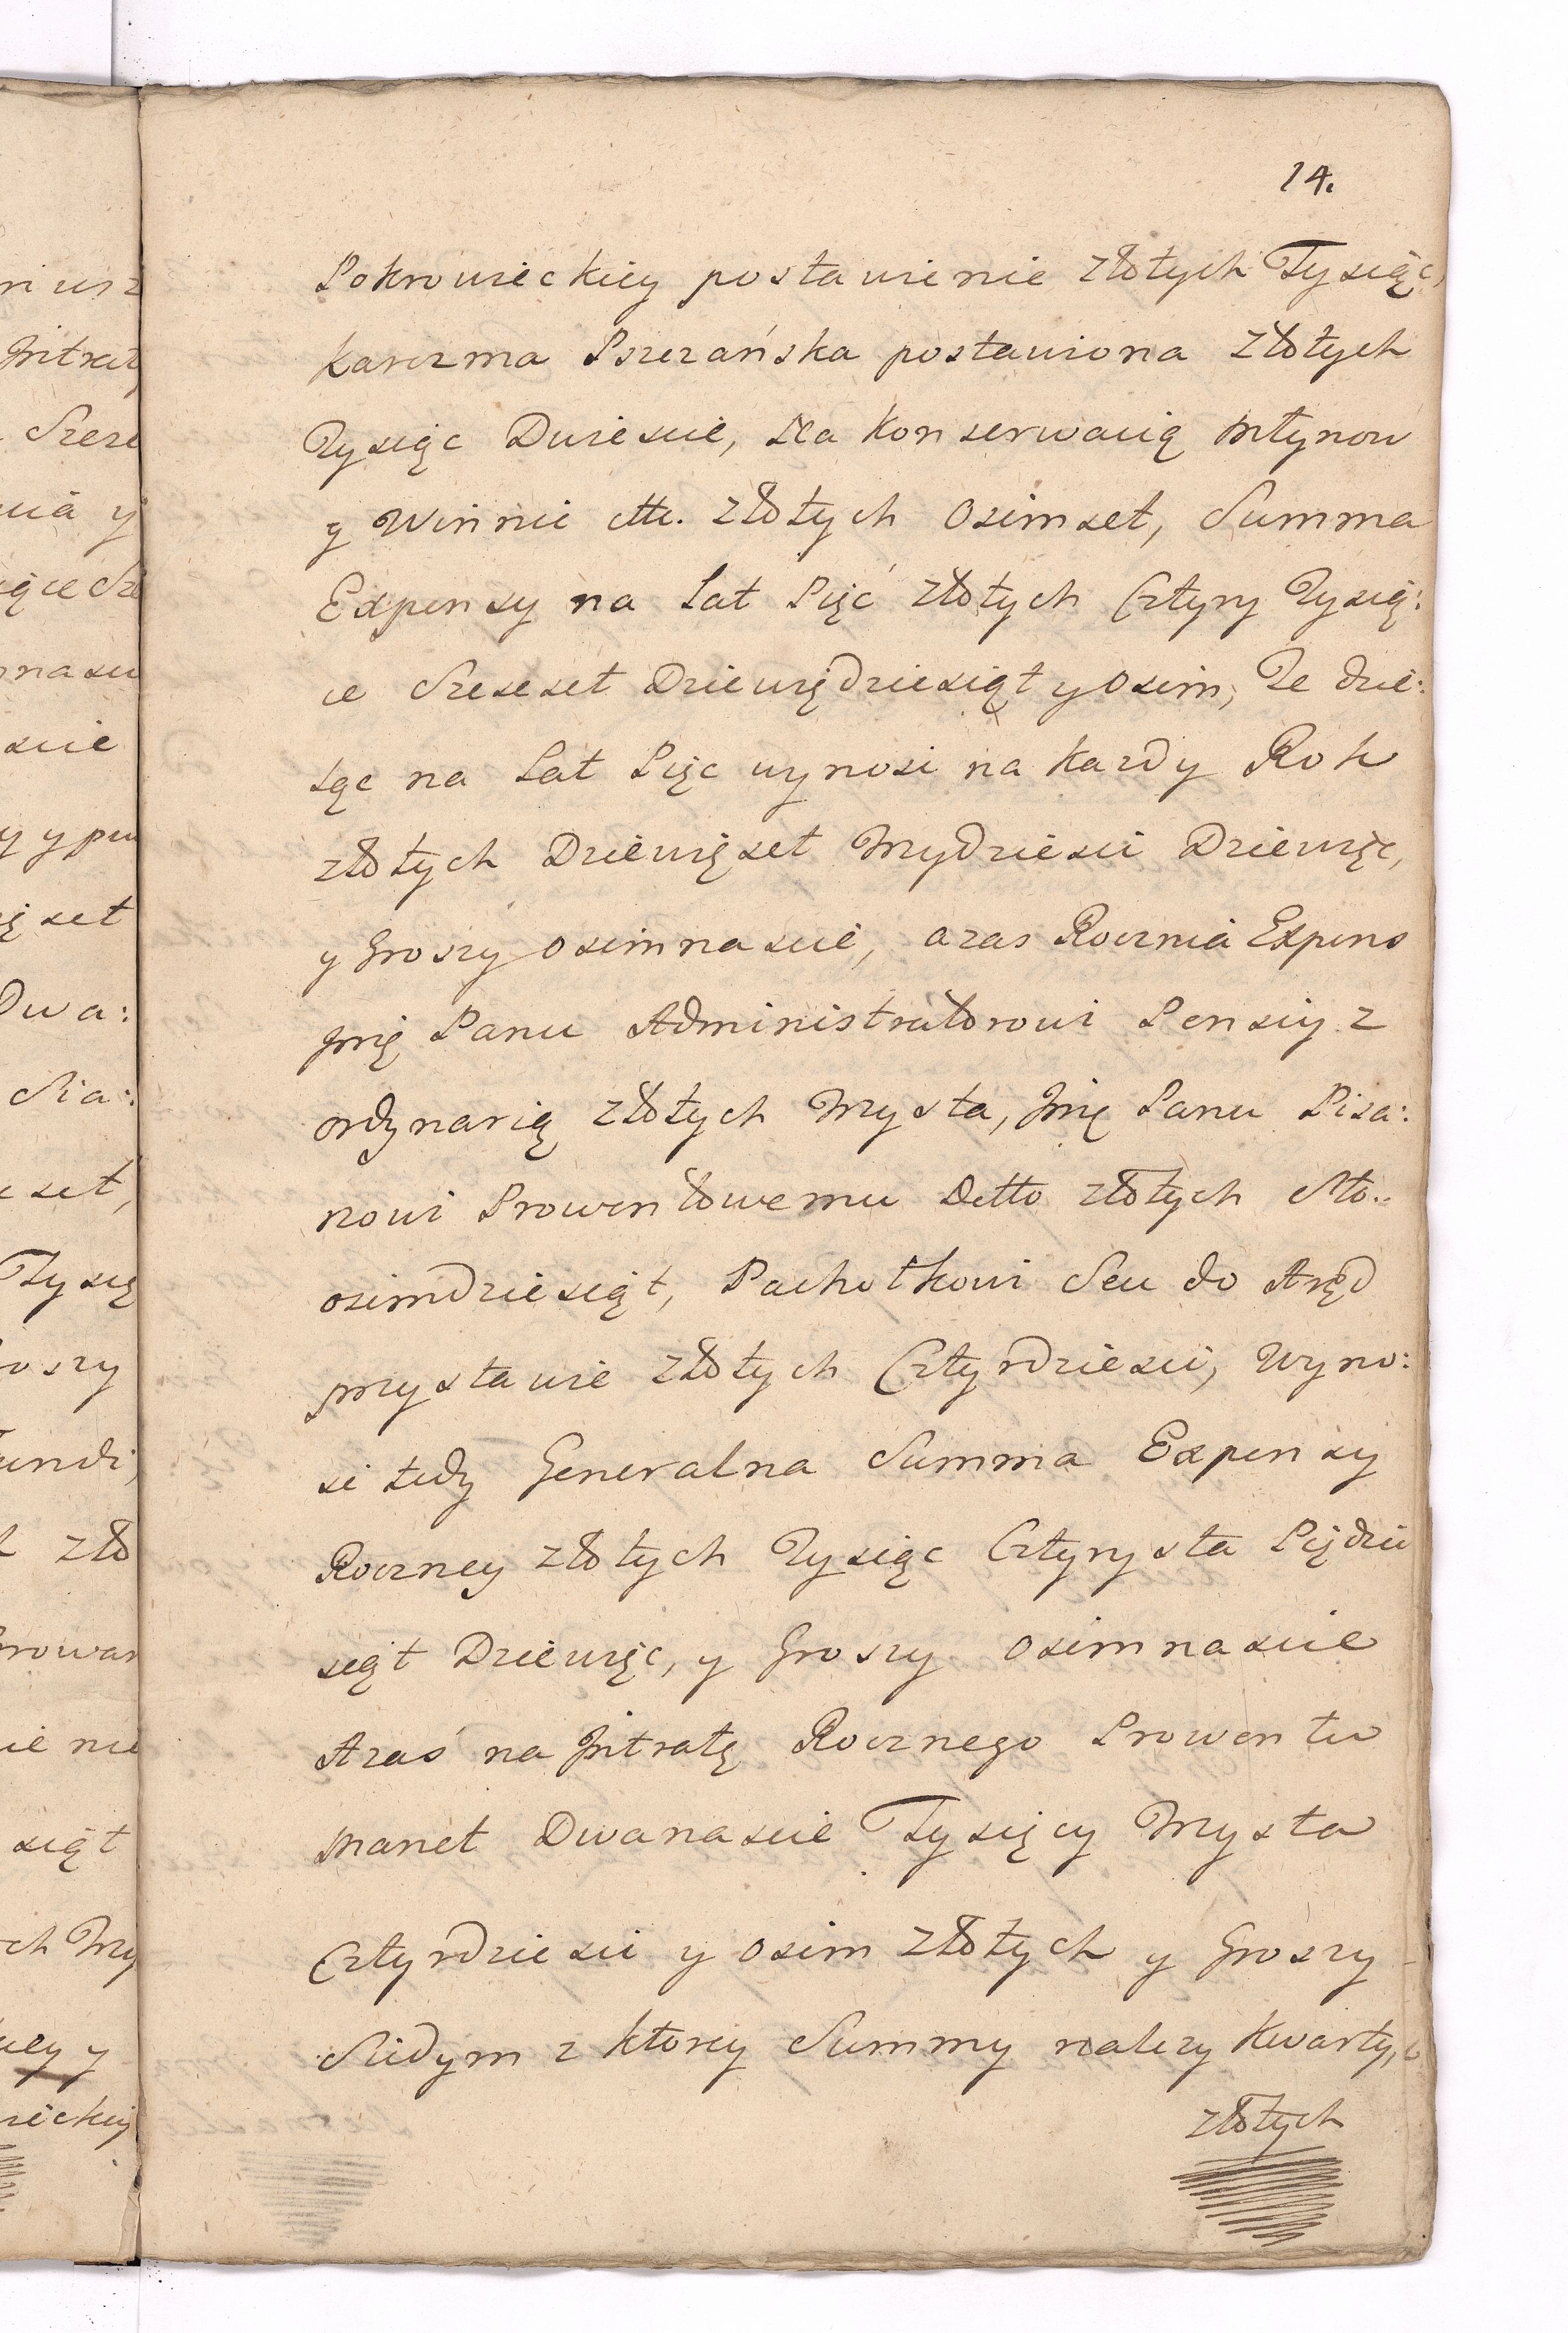 14.
Pokrowieckiey postawienie złotych Tysiąc,
Karczma Pszczańska postawiona złotych
Tysiąc Dwiescie, Na Konserwacią Młynow
y Winnic etc. złotych Osimset, Summa
Expensy na Lat Pięć złotych Cztyry Tysią:
ce Szescset Dziewiędziesiąt y Osim, Te dzie:
ląc na Lat Pięc wynosi na Kazdy Rok
złotych Dziewięset Trzydziesci Dziewięc,
y Groszy osimnascie, azas Roczniá Expens
Jmę Panu Administratorowi Pensiy z
ordynarią złotych Trzysta, Jmę Panu Pisa:
rzowi Prowentowemu Detto złotych Sto..
osimdziesiąt, Pachołkowi Seu do Aręd
przystawie złotych Cztyrdziesci, Wyno:
si tedy Generalna Summa Expensy
Roczney złotych Tysiąc Cztyrysta Piędzie
siąt Dziewięc, y Groszy osimnascie
Azaś na Jntratę Rocznego Prowentu
Manet Dwanascie Tysięcy Trzysta
Cztyrdziesci y osim złotych y Groszy
Siedym z ktorey Summy nalezy Kwarty,
złotych